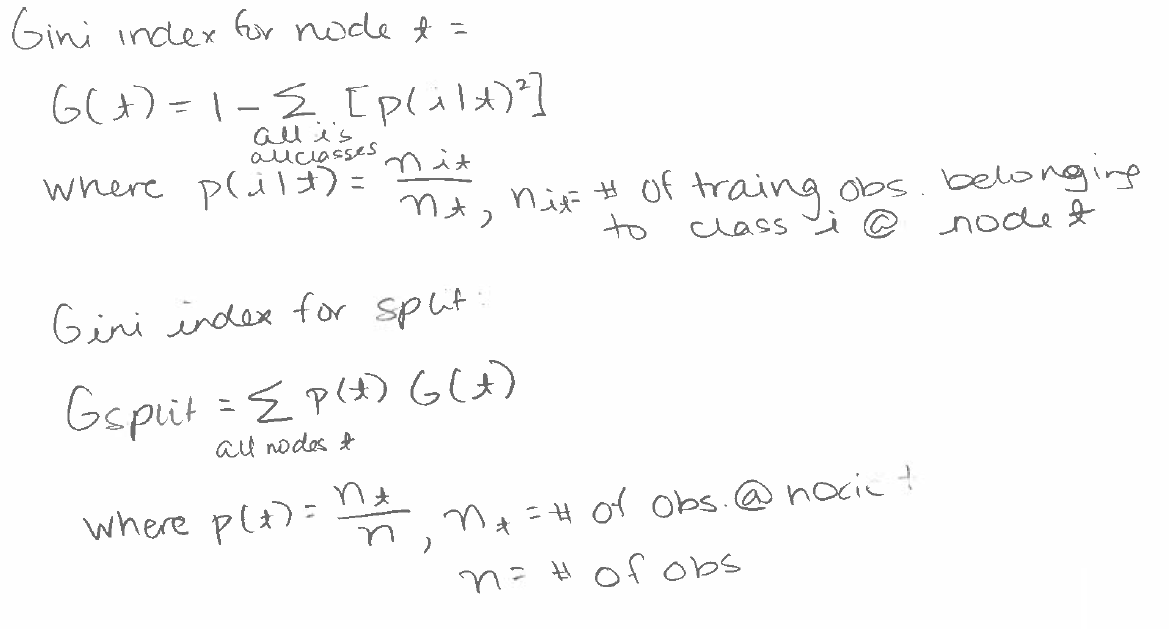 Gini index for node t =
G(t) = 1 - Σ [p(i|t)²]
all i's
all classes
where p(i|t) = n_it / n_t, n_it = # of traing obs. belonging
to class i @ node t
Gini index for split:
Gsplit = Σ p(t) G(t)
all nodes t
where p(t) = n_t / n, n_t = # of obs. @ node t
n = # of obs